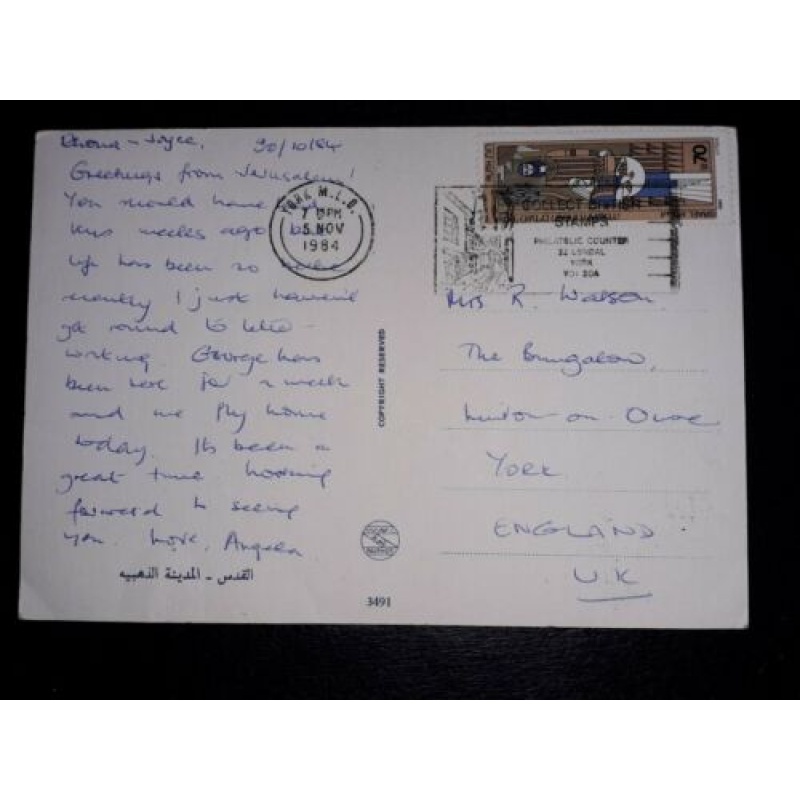 30/10/84
Greetings from Jerusalem!
You should have
weeks ago but
life has been so
I just haven't
got round to letter
writing. George has
been here for a week
and we fly home
today. It's been a
great time looking
forward to seeing
you. Love, Angela
القدس - المدينة الذهبيه
COPYRIGHT RESERVED
3491
YORK M.L.O.
7 PM
5 NOV
1984
70
COLLECT BRITISH
STAMPS
PHILATELIC COUNTER
22 LENDAL
YORK
YO1 2DA
Mrs R. Watson
The Bungalow,
Linton-on-Ouse
York
ENGLAND
U.K